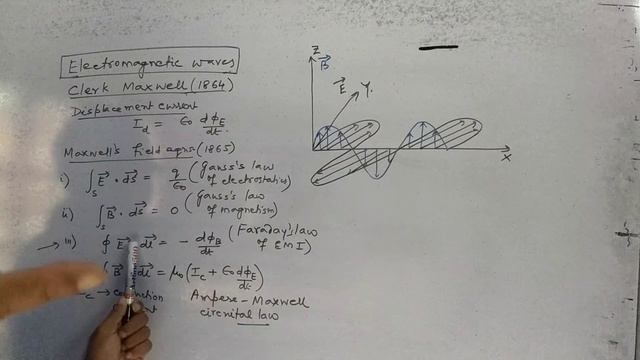 Electromagnetic waves
Clerk Maxwell (1864)
Displacement current
I_d = ϵ₀ dϕ_E/dt
Maxwell's field eqns (1865)
i) ∫_S E⃗ · ds⃗ = q/ϵ₀ (Gauss's law of electrostatics)
ii) ∫_S B⃗ · ds⃗ = 0 (Gauss's law of magnetism)
→ iii) ∮ E⃗ · dl⃗ = - dϕ_B/dt (Faraday's law of EMI)
B⃗ dl⃗ = μ₀ (I_c + ϵ₀ dϕ_E/dt)
c → Ampere - Maxwell
circuital law
Z
B⃗
E⃗
Y
X